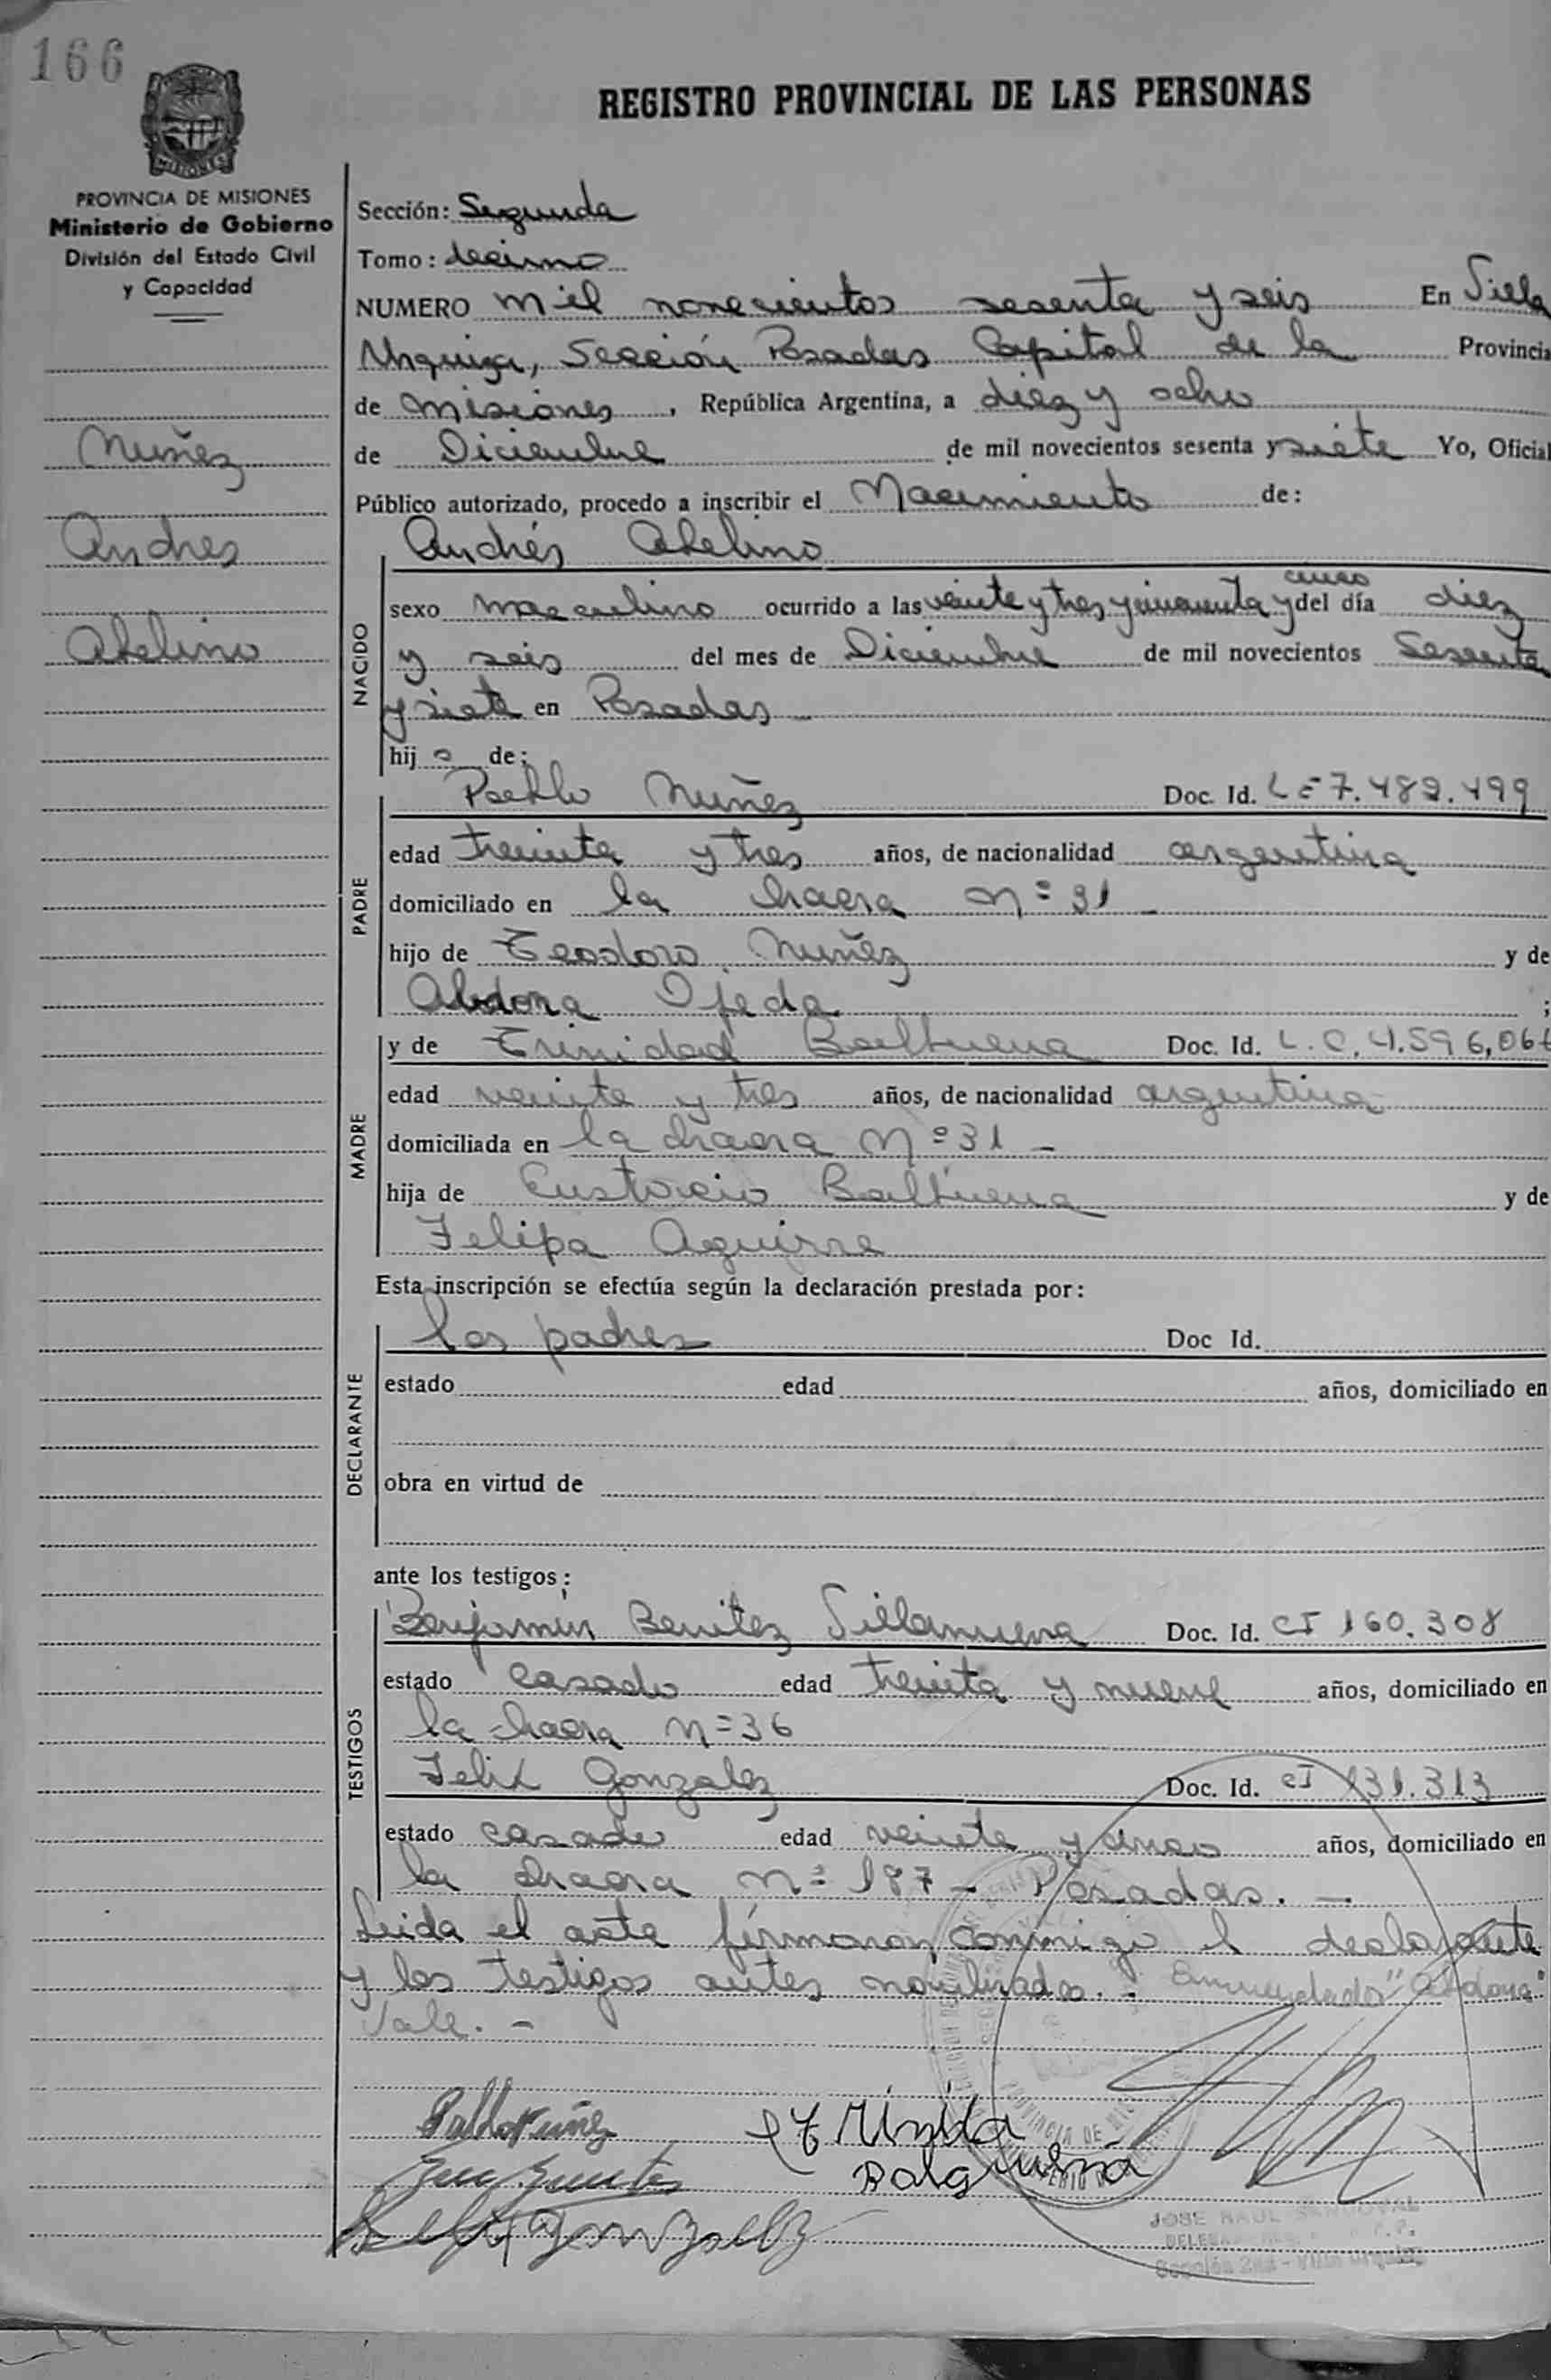 166
MISIONES
REGISTRO PROVINCIAL DE LAS PERSONAS
PROVINCIA DE MISIONES
Ministerio de Gobierno
División del Estado Civil
y Capacidad
Nuñez
Andres
Abelino
Sección: Segunda
Tomo: decimo
NUMERO mil novecientos sesenta y seis En Villa
Urquiza, Sección Posadas Capital de la Provincia
de Misiones, República Argentina, a diez y ocho
de Diciembre de mil novecientos sesenta y siete Yo, Oficial
Público autorizado, procedo a inscribir el Nacimiento de:
Andrés Abelino
cinco
NACIDO
sexo masculino ocurrido a las veinte y tres y cincuenta y del día diez
y seis del mes de Diciembre de mil novecientos Sesenta
y siete en Posadas
hijo de:
PADRE
Pablo Nuñez Doc. Id. LE 7.482.499
edad treinta y tres años, de nacionalidad argentina
domiciliado en la chacra Nº 31
hijo de Teodoro Nuñez y de
Abdona Ojeda ;
MADRE
y de Trinidad Balbuena Doc. Id. L.C. 4.596,06
edad veinte y tres años, de nacionalidad argentina
domiciliada en la chacra Nº 31 -
hija de Eustacio Balbuena y de
Felipa Aguirre
Esta inscripción se efectúa según la declaración prestada por:
DECLARANTE
los padres Doc Id.
estado edad años, domiciliado en
obra en virtud de
ante los testigos:
TESTIGOS
Benjamin Benitez Villanueva Doc. Id. CI 160.308
estado casado edad treinta y nueve años, domiciliado en
la chacra Nº 36
Felix Gonzalez Doc. Id. CI 131.313
estado casado edad veinte y cinco años, domiciliado en
la chacra Nº 187 - Posadas. -
Leida el acta firmaron conmigo el declarante
y los testigos antes nombrados. - Enmendado "Abdona"
Vale. -
Pablo Nuñez
Trinida
Balguena
Felix Gonzalez
JOSE RAUL SANDOVAL
Sección 2da - Villa Urquiza